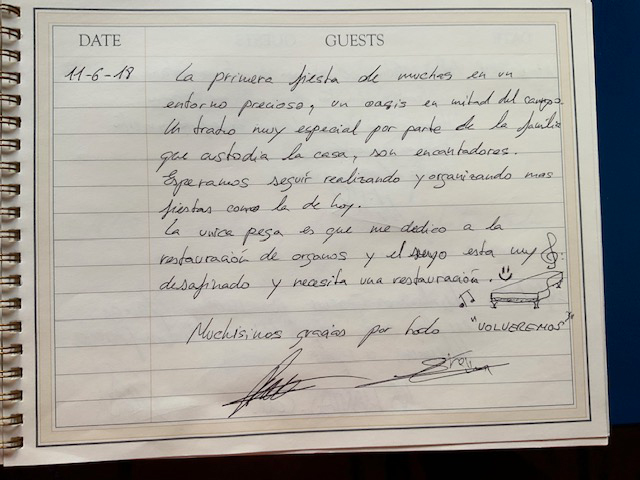 DATE GUESTS
11-6-18 La primera fiesta de muchas en un
entorno precioso, un oasis en mitad del campo.
Un trato muy especial por parte de la familia
que custodia la casa, son encantadores.
Esperamos seguir realizando y organizando mas
fiestas como la de hoy.
La unica pega es que me dedico a la
restauración de organos y el suyo esta muy
desafinado y necesita una restauración.
Muchisimos gracias por todo "VOLVEREMOS"